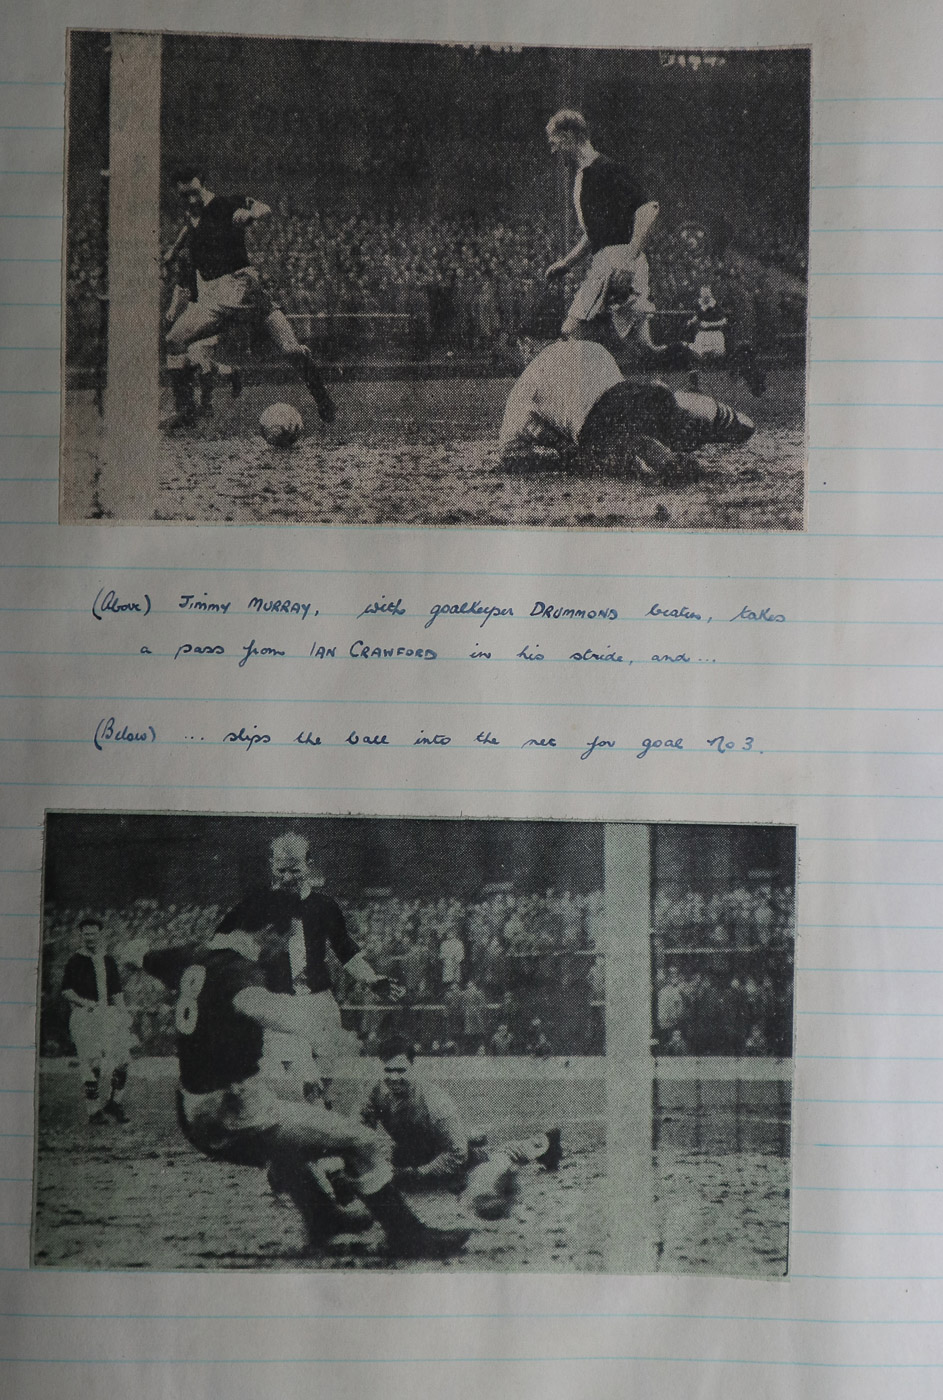 (Above) Jimmy MURRAY, with goalkeeper DRUMMOND beaten, takes
a pass from IAN CRAWFORD in his stride, and ...
(Below) ... slips the ball into the net for goal No 3.
8